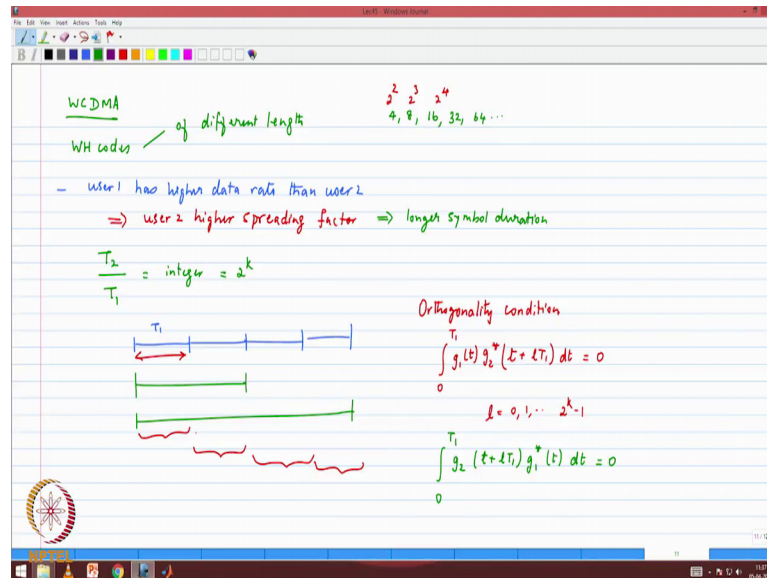 Lec45 - Windows Journal
File Edit View Insert Actions Tools Help
WCDMA
WH codes
of different length
2² 2³ 2⁴
4, 8, 16, 32, 64 ...
- user 1 has higher data rate than user 2
⇒ user 2 higher spreading factor ⇒ longer symbol duration
T₂/T₁ = integer = 2ᵏ
T₁
Orthogonality condition
∫₀^T₁ g₁(t) g₂*(t + lT₁) dt = 0
l = 0, 1, ... 2ᵏ-1
∫₀^T₁ g₂(t + lT₁) g₁*(t) dt = 0
NPTEL
11